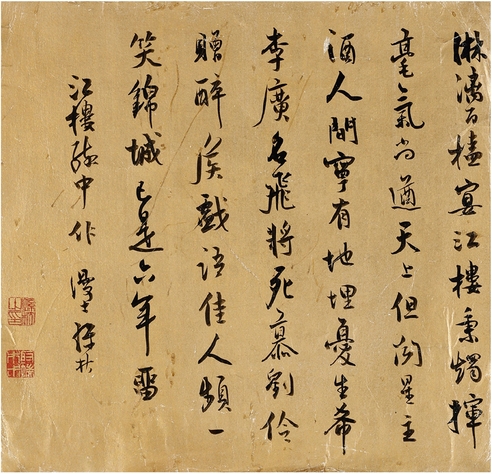 淋漓百榼宴江樓秉燭揮
毫氣尚遒天上但聞星主
酒人間寧有地埋憂生希
李廣名飛將死慕劉伶
贈醉侯戲語佳人頻一
笑錦城已是六年畱
江樓醉中作 孫杕